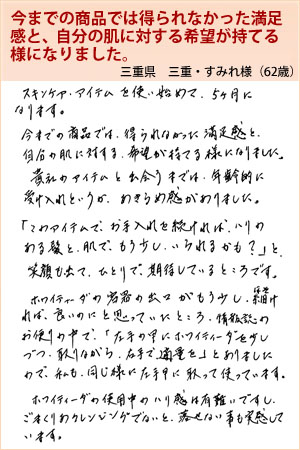 今までの商品では得られなかった満足
感と、自分の肌に対する希望が持てる
様になりました。
三重県　三重・すみれ様（62歳）
スキンケア、アイテムを使い始めて、5ヶ月に
なります。
今までの商品では、得られなかった満足感と、
自分の肌に対する、希望が持てる様になりました。
貴社のアイテムと出会うまでは、年齢的に
受け入れというか、あきらめ感がありました。
「このアイテムで、お手入れを続ければ、ハリの
ある髪と、肌で、もう少し、いられるかも？」と、
笑顔も出て、ひとりで、期待しているところです。
ホワイティーダの容器の出口がもう少し、縮け
れば、良いのにと思っていたところ、情報誌の
お便りの中で、「左手の甲にホワイティーダを少し
づつ、取りながら、右手で適量を」とありました
ので、私も、同じ様に左手甲に取って使っています。
ホワイティーダの使用中のハリ感は有難いですし、
ごゆるりわクレンジングでないと、落せない事も実感して
います。